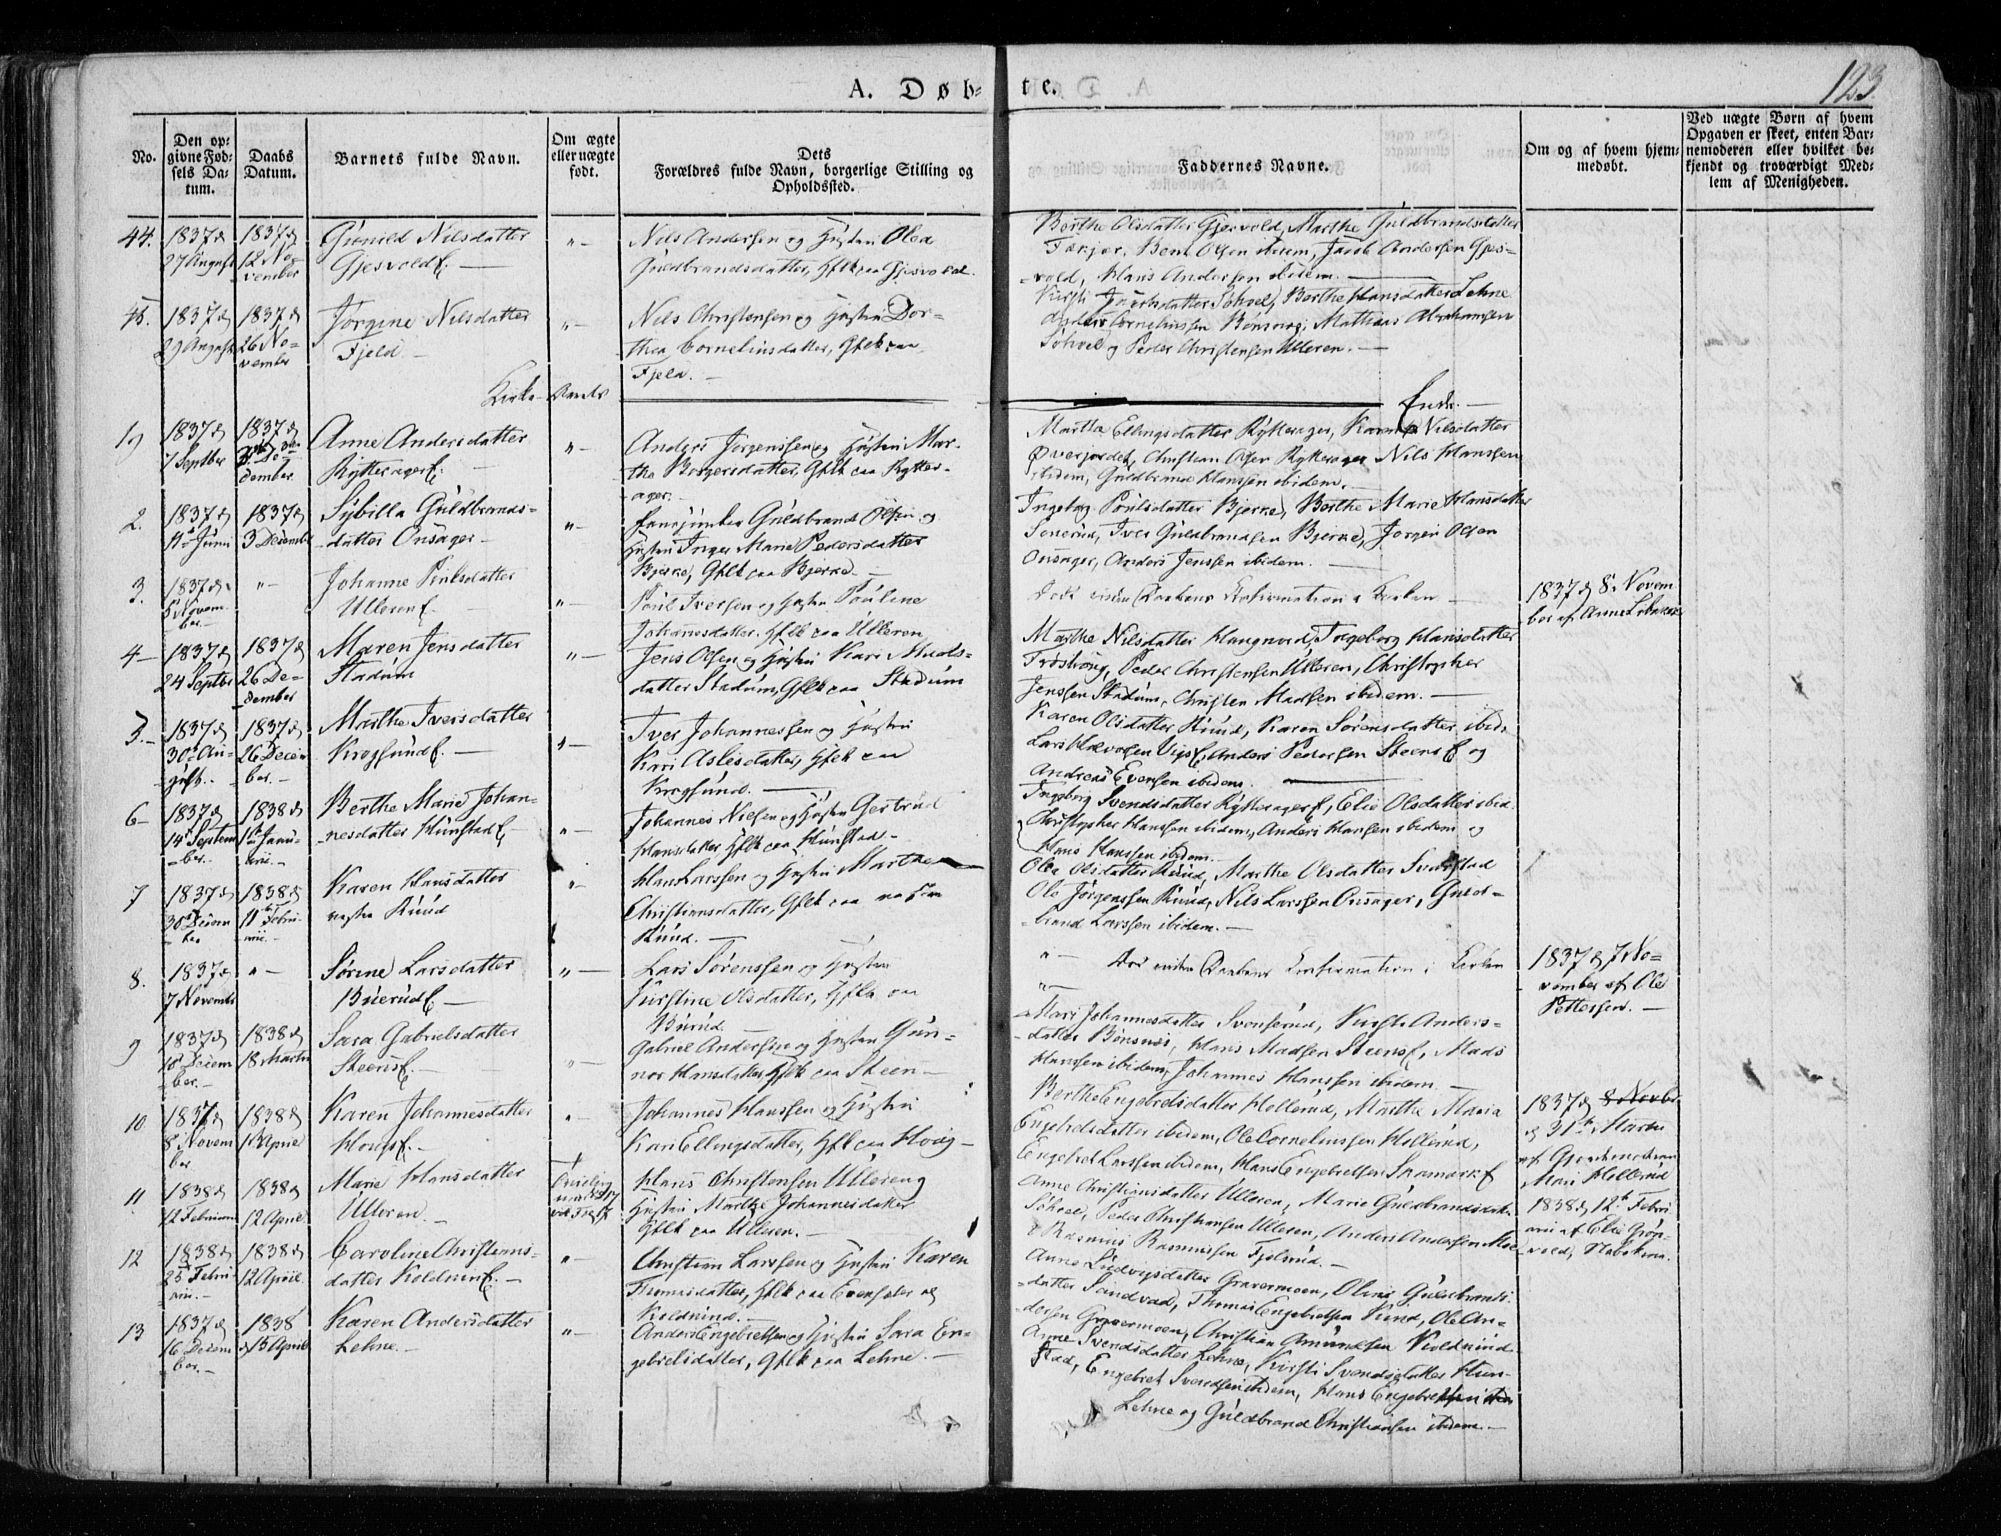 A. Døb-te.
123.
No.
Den opgivne Fødsels Datum.
Daabs Datum.
Barnets fulde Navn.
Om ægte eller uægte født.
Dets Forældres fulde Navn, borgerlige Stilling og Opholdssted.
Faddernes Navne.
Om og af hvem hjemmedøbt.
Ved uægte Børn af hvem Opgaven er skeet, enten Barnemoderen eller hvilket bekjendt og troværdigt Medlem af Menigheden.
44. 1837 27 August
1837 12 November
Gunild Nilsdatter
Gjesvold
Nils Andersen og Hustru Olea
Guldbrandsdatter, Gflk paa Gjesvold.
Berthe Olsdatter Gjesvold, Marthe Guldbrandsdatter
Bent Olsen ibidem, Jacob Andersen Gjes-
vold, Hans Andersen ibidem.
45. 1837 29 August
1837 26 November
Jørgine Nilsdatter
Fjeld
Nils Christensen og Hustru Dor-
thea Corneliusdatter, Gflk paa
Fjeld.
Kirsti Søhvel, Berthe Hansdatter Lehne
Corneliussen Bønsnæs, Mathias Abrahamsen
Søhvel og Peder Christensen Ulleren.
Kirke-Aarets
Ende.
1 1837 7 Septbr
1837 December
Anne Andersdatter
Rytterager
Anders Jørgenssen og Hustru Mar-
the Borgersdatter, Gflk paa Rytter-
ager.
Martha Ellingsdatter Rytterager, Karen Nilsdatter
Øverjordet, Christian Olsen Rytterager Nils Hanssen
ibidem, Guldbrand Hanssen ibidem.
2. 1837 11 Juni
1837 3 December
Sybilla Guldbrands-
datter Onsager
Guldbrand Olsen og
Hustru Inger Marie Pedersdatter
Bjerke, Gflk paa Bjerke.
Ingeborg Poulsdatter Bjerke, Berthe Marie Hansdatter
Sonerud, Iver Guldbrandsen Bjerke, Jørgen Olsen
Onsager, Anders Jenssen ibidem.
3. 1837 5 November
Johanne Poulsdatter
Ulleren
Poul Iversen og Hustru Pouline
Johannesdatter, Gflk paa Ulleren
Død inden Daabens Confirmation i Kirken
1837 8 Novem
ber af Anne
4 1837 24 Septbr
1837 26 December
Maren Jensdatter
Stadum
Jens Olsen og Hustru Kari Mads-
datter Stadum, Gflk paa Stadum
Marthe Nilsdatter Haugnord, Ingeborg Hansdatter
Peder Christensen Ulleren, Christopher
Jenssen Stadum, Christen Madsen ibidem.
5. 1837 30 August
1837 26 December
Marthe Iversdatter
Krogsund
Iver Johannessen og Hustru
Kari Aslesdatter, Gflk paa
Krogsund.
Karen Olsdatter Ruud, Karen Sørensdatter ibid.
Lars Halvorsen Vig, Anders Pedersen Steen og
Andreas Evensen ibidem.
6 1837 14 September
1838 1 Januarii
Berthe Marie Johan-
nesdatter Hunstad
Johannes Nielsen og Hustru Gertrud
Hansdatter Gflk paa Hunstad
Ingeborg Svendsdatter Rytterager, Elie Olsdatter ibid.
Christopher Hanssen ibidem, Anders Hansen ibidem og
Hans Hanssen ibidem.
7 1837 30 December
1838 11 Februarii
Karen Hansdatter
Ruud
Hans Larssen og Hustru Marthe
Christiansdatter, Gflk paa
Ruud.
Olea Olsdatter Ruud, Marthe Olsdatter
Ole Jørgenssen Ruud, Nils Larssen Onsager, Guld-
brand Larssen ibidem.
8. 1837 7 November
Sørine Larsdatter
Buerud
Lars Sørenssen og Hustru
Kirstine Olsdatter, Gflk paa
Burud.
Død inden Daabens Confirmation i Kirken
1837 7 No-
vember af Ole
Pettersen.
9 1837 18 December
1838 18 Martii
Sara Gabrielsdatter
Steen
Gabriel Andersen og Hustru Gun-
nor Hansdatter Gflk paa Steen
Mari Johannesdatter Svenserud, Kirsti Anders-
datter Bønsnæs, Hans Madsen Steens, Mads
Hanssen ibidem, Johannes Hanssen ibidem.
10 1837 8 November
1838 1 April
Karen Johannesdatter
Houg
Johannes Hanssen og Hustru
Kari Ellingsdatter, Gflk paa Houg
Berthe Engebretsdatter Hollerud, Marthe Maria
Engebretsdatter ibidem, Ole Corneliussen Hollerud,
Engebret Larssen ibidem, Hans Engebretsen
1837 8 Novbr
31 Martii
af Gjordemoderen
Mari Hollerud
11 1838 12 Februarii
1838 12 April
Marie Hansdatter
Ulleren.
Hans Christensen Ulleren og
Hustru Marthe Johannesdatter
Gflk paa Ulleren.
Anne Christiansdatter Ulleren, Marie Guldbrandsdat-
Søhvel, Peder Christensen Ulleren, Anders Andersen
Rasmus Rasmussen Fjelsrud.
1838 12 Febru
arii af Elie Grøn-
vold,
12 1838 25 Februarii
1838 12 April
Caroline Christians-
datter Koldnind.
Christian Larssen og Hustru Karen
Thomasdatter, Gflk paa og
Koldnind.
Anne Ludvigsdatter Gravermoen, Oline Guldbrands-
datter Sandvad, Thomas Engebretsen Rund, Ole An-
dersen Gravermoen, Christian Amundsen Koldnind.
13 1837 16 December
1838 13 April
Karen Andersdatter
Lehne
Anders Engebretsen og Hustru Sara En-
gebretsdatter, Gflk paa Lehne.
Anne Svendsdatter Lehne, Kirsti Svendsdatter Hun-
stad, Engebret Svendsen ibidem, Hans
Lehne og Guldbrand Christiansen ibidem.